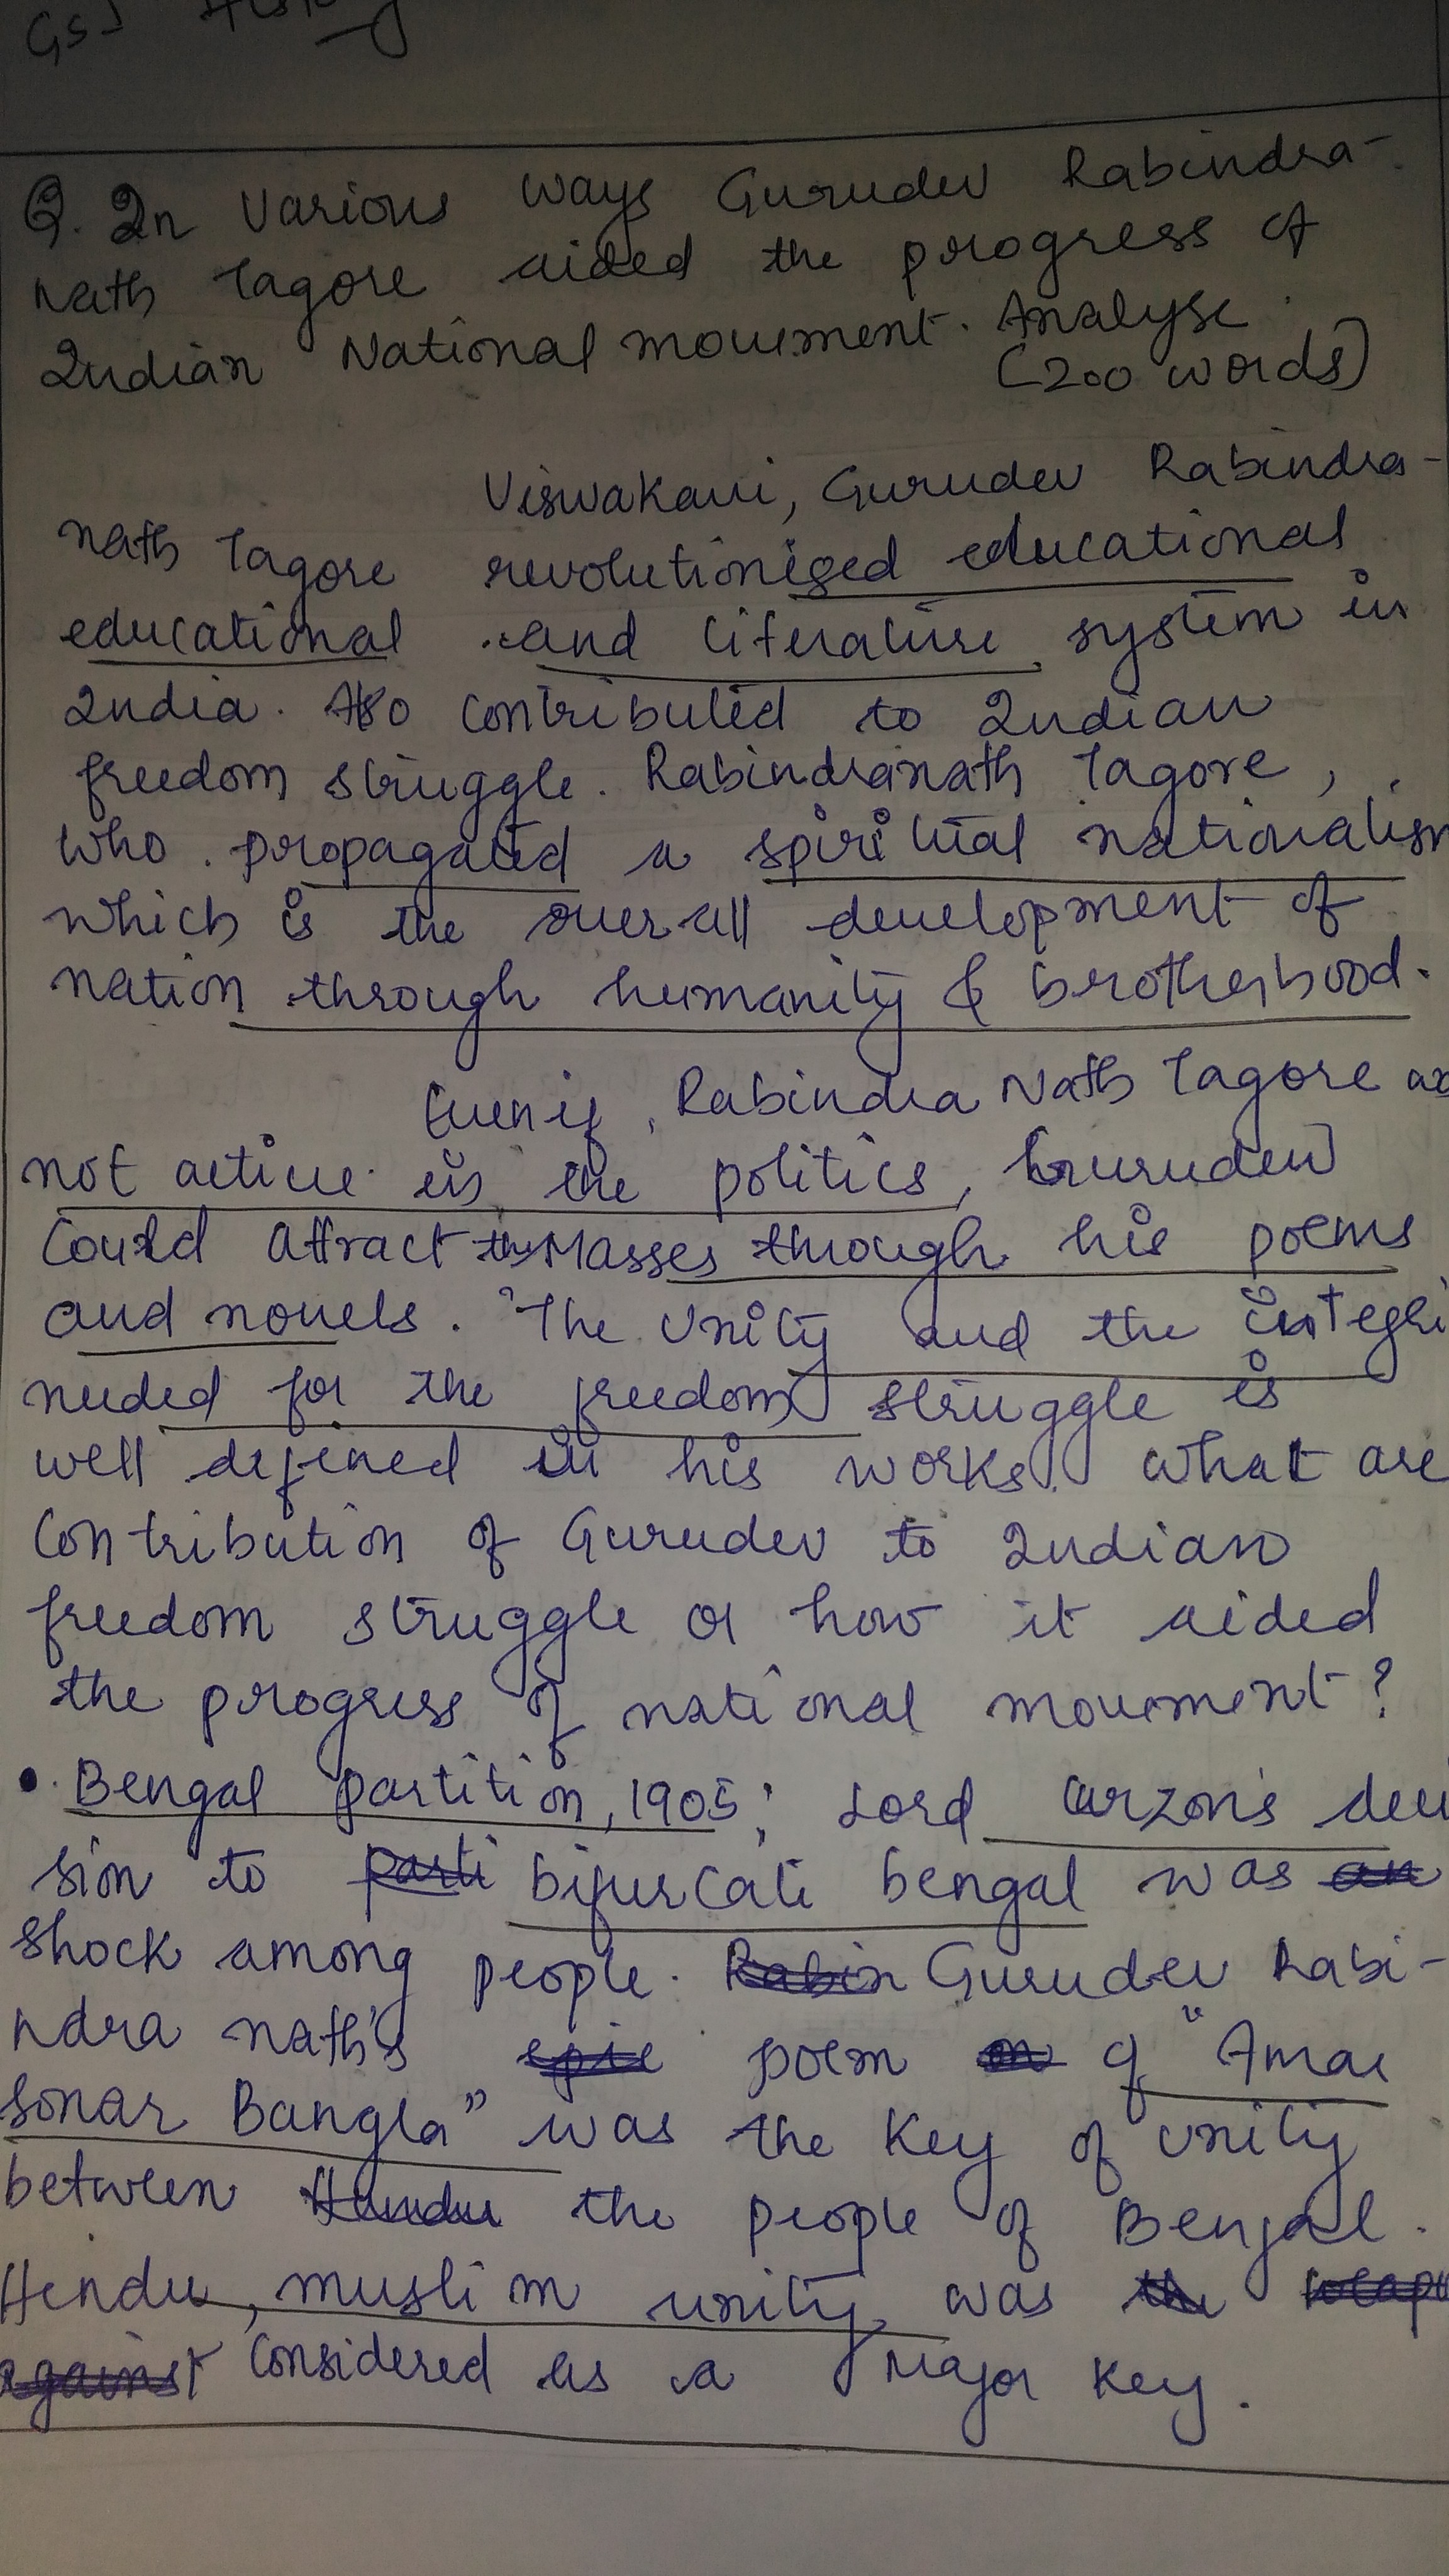 GSI History
Q. In various ways Gurudev Rabindra-
nath Tagore aided the progress of
Indian National movement. Analyse.
(200 words)
Viswakavi, Gurudev Rabindra-
nath Tagore revolutionised educational
educational and literature system in
India. Also contributed to Indian
freedom struggle. Rabindranath Tagore,
who propagated a spiritual nationalism
which is the overall development of
nation through humanity & brotherhood.
Even if, Rabindra Nath Tagore
not active in the politics, Gurudev
could attract the Masses through his poems
and novels. The Unity and the integri
needed for the freedom struggle is
well defined in his works. What are
contribution of Gurudev to Indian
freedom struggle or how it aided
the progress of national movement?
• Bengal partition, 1905: Lord Curzon's deci
sion to parti bifurcate bengal was an
shock among people. Rabin Gurudev Rabi-
ndra nath's epic poem on of "Amar
sonar Bangla" was the key of unity
between Hindu the people of Bengal.
Hindu, muslim unity was the
against considered as a Major key.